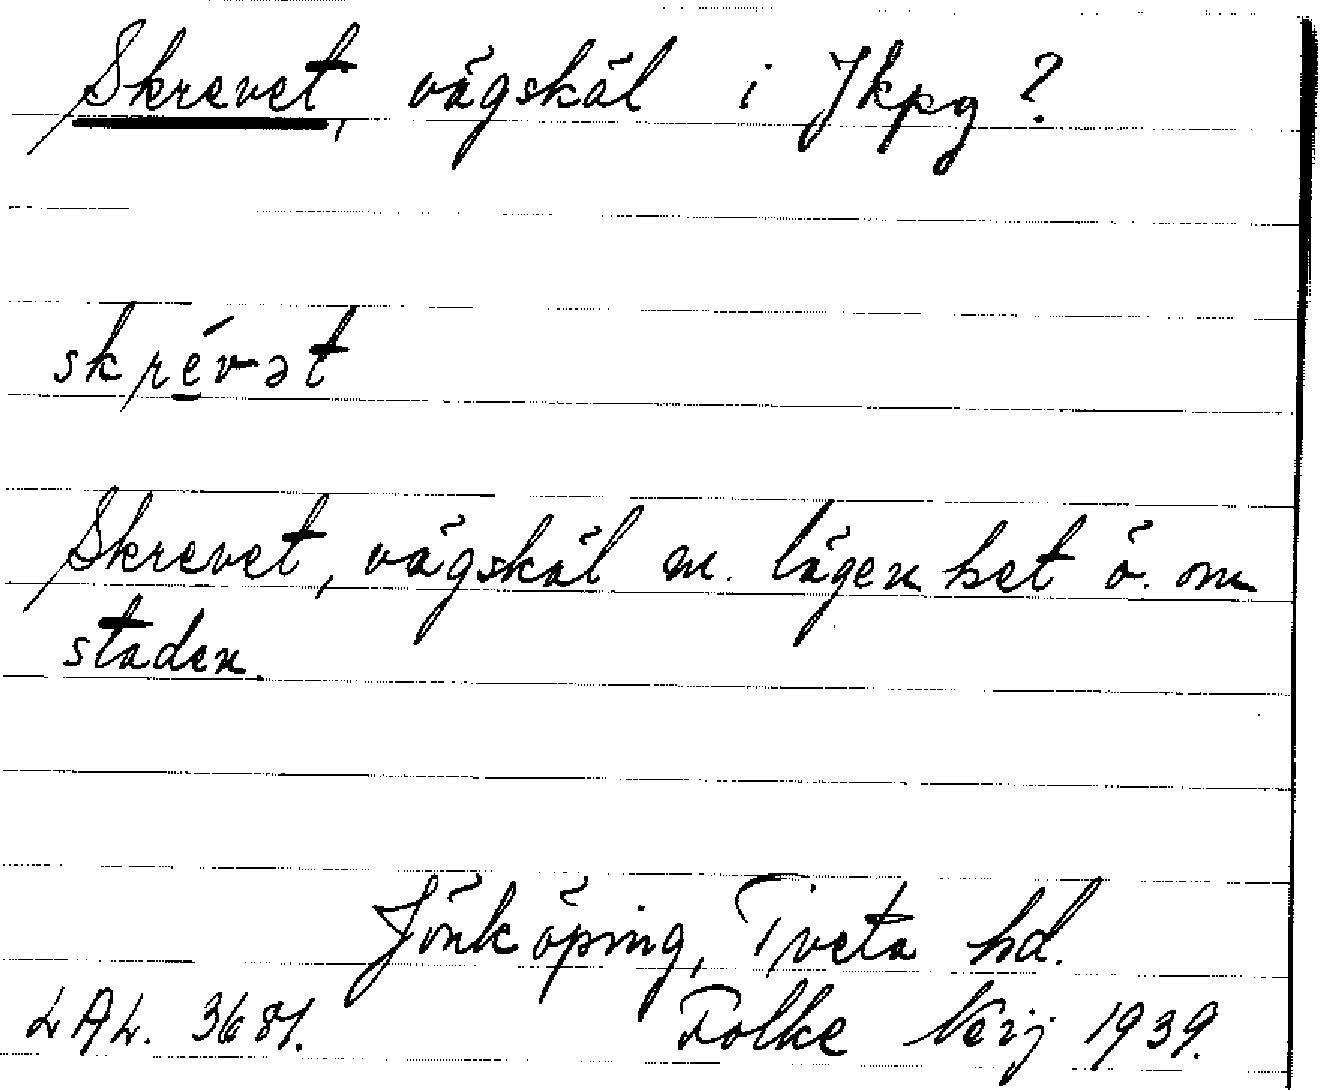 Skrevet, vägskäl i Jkpg?
skré̱vət
Skrevet, vägskäl m. lägenhet ö. om
staden.
Jönköping, Tveta hd.
LAL. 3681. Folke 1939.